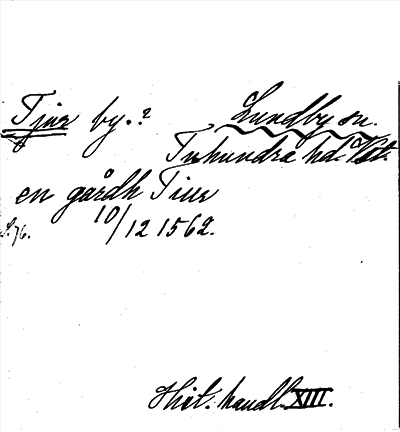 Tjur by.? Lundby sn.
Tuhundra hd. Vstm.
en gårdh Tiur
10/12 1562.
s. 76.
Hist. handl. XIII.